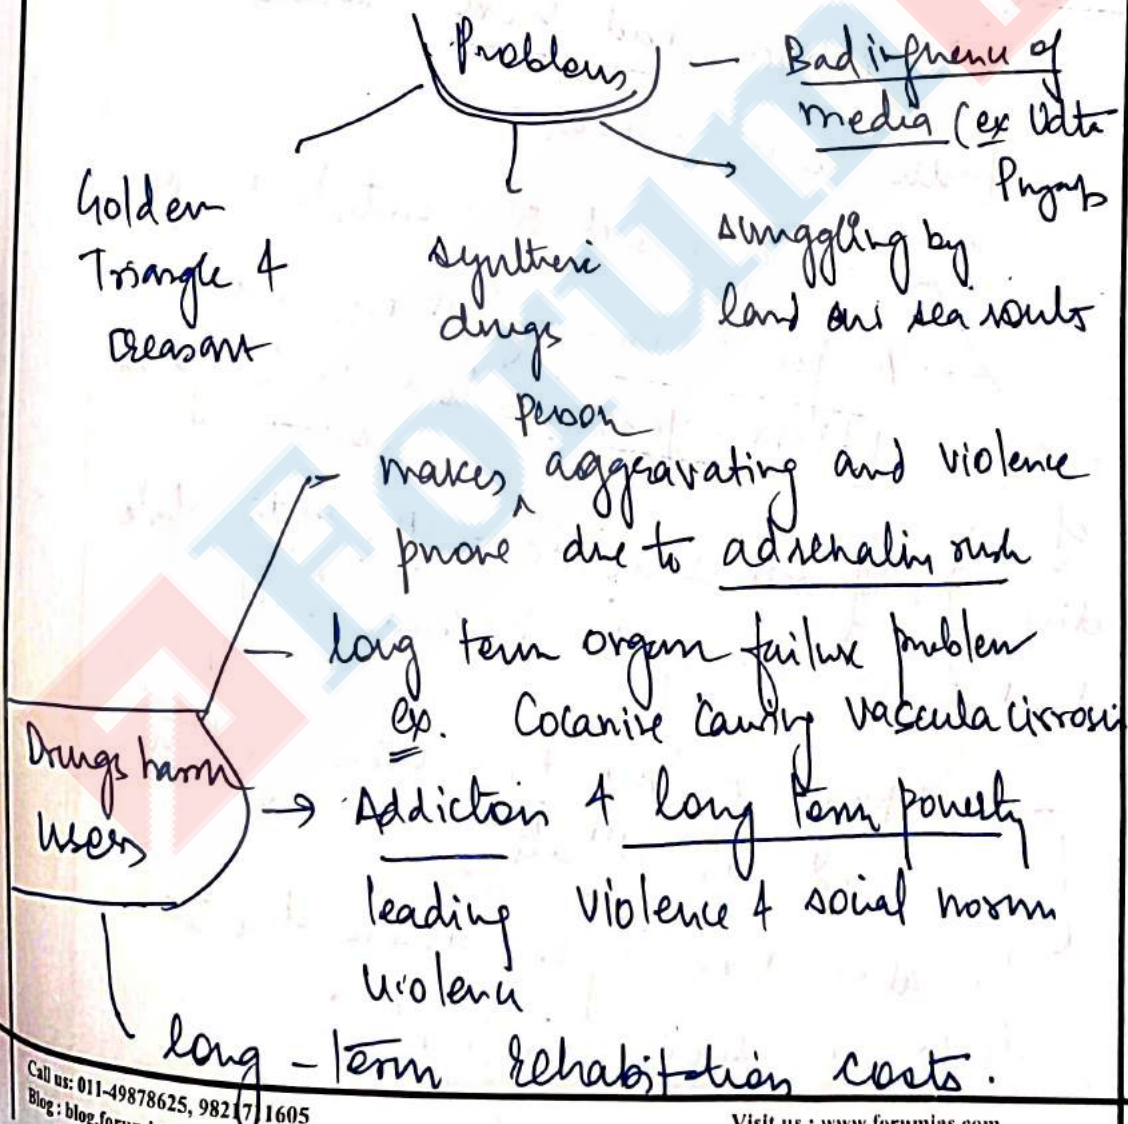 Problems
— Bad influence of
media (ex Udta
Punjab
Golden
Triangle &
Creasant
synthetic
drugs
smuggling by
land and sea routs
person
makes ^ aggravating and violence
prone due to adrenalin rush
— long term organ failure problem
ex. Cocanive causing vascula cirrosis
Drugs harm
users
→ Addiction & long term poverty
leading violence & social norm
violence
long - term rehabitation costs.
Call us: 011-49878625, 9821711605
Blog : blog.forum
Visit us : www.forumias.com
Forum